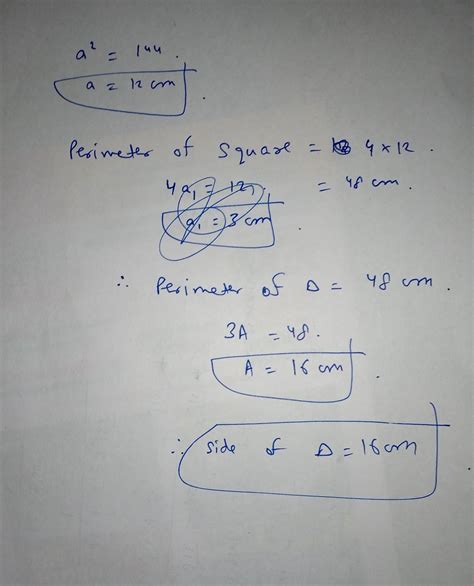 a² = 144.
a = 12 cm.
Perimeter of square = 4 × 12.
4a₁ = 12, = 48 cm.
a₁ = 3 cm
∴ Perimeter of Δ = 48 cm.
3A = 48.
A = 16 cm.
∴ side of Δ = 16 cm